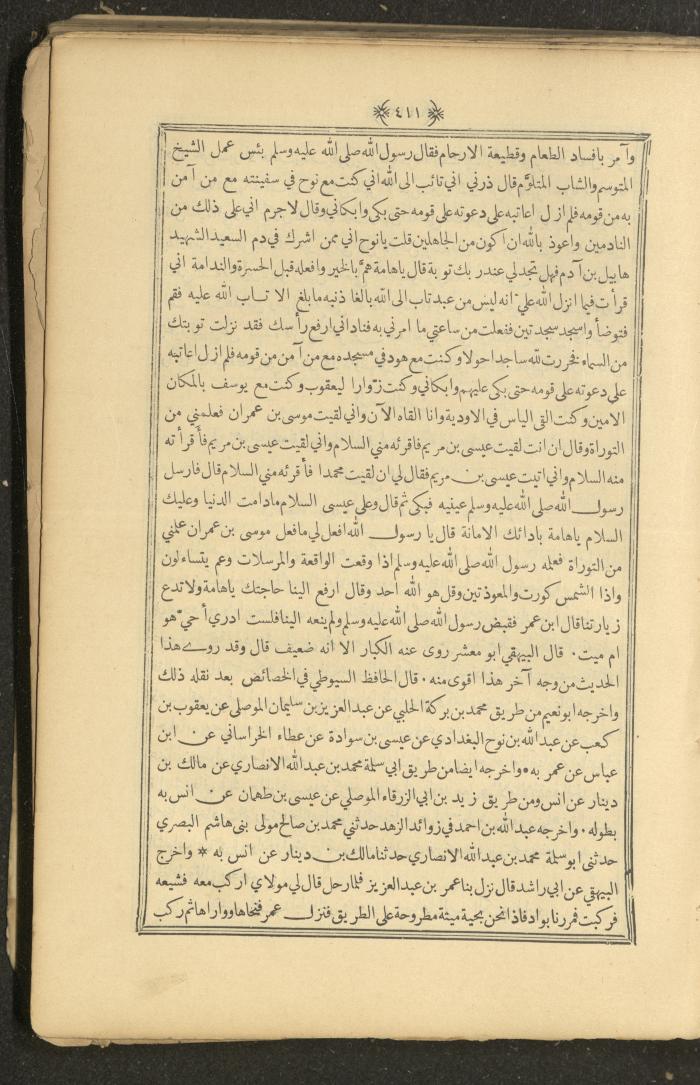 ٤١١
وآمر بافساد الطعام وقطيعة الارحام فقال رسول الله صلى الله عليه وسلم بئس عمل الشيخ
المتوسم والشاب المتلوّم قال ذرني اني تائب الى الله اني كنت مع نوح في سفينته مع من آمن
به من قومه فلم ازل اعاتبه على دعوته على قومه حتى بكى وابكاني وقال لا جرم اني على ذلك من
النادمين واعوذ بالله ان آكون من الجاهلين قلت يا نوح اني ممن اشرك في دم السعيد الشهيد
هابيل بن آدم فهل تجد لي عند ربك توبة قال ياهامة همَّ بالخير وافعله قبل الحسرة والندامة اني
قرأت فيما انزل الله عليّ انه ليس من عبد تاب الى الله بالغا ذنبه ما بلغ الا تاب الله عليه فقم
فتوضأ واسجد سجدتين ففعلت من ساعتي ما امرني به فناداني ارفع رأسك فقد نزلت توبتك
من السماء فخررت لله ساجدا حولا وكنت مع هود في مسجده مع من آمن من قومه فلم ازل اعاتبه
على دعوته على قومه حتى بكى عليهم وابكاني وكنت زوّارا ليعقوب وكنت مع يوسف بالمكان
الامين وكنت القى الياس في الاودية وانا القاه الآن واني لقيت موسى بن عمران فعلمني من
التوراة وقال ان انت لقيت عيسى بن مريم فاقرئه مني السلام واني لقيت عيسى بن مريم فأقرأته
منه السلام واني اتيت عيسى بن مريم فقال لي ان لقيت محمدا فأقرئه مني السلام قال فارسل
رسول الله صلى الله عليه وسلم عينيه فبكى ثم قال وعلى عيسى السلام مادامت الدنيا وعليك
السلام ياهامة بادائك الامانة قال يا رسول الله افعل لي ما فعل موسى بن عمران علمني
من التوراة فعلمه رسول الله صلى الله عليه وسلم اذا وقعت الواقعة والمرسلات وعم يتساءلون
واذا الشمس كورت والمعوذتين وقل هو الله احد وقال ارفع الينا حاجتك ياهامة ولا تدع
زيارتنا قال ابن عمر فقبض رسول الله صلى الله عليه وسلم ولم ينعه الينا فلست ادري أحيّ هو
ام ميت٠ قال البيهقي ابو معشر روى عنه الكبار الا انه ضعيف قال وقد روے هذا
الحديث من وجه آخر هذا اقوى منه ٠ قال الحافظ السيوطي في الخصائص بعد نقله ذلك
واخرجه ابو نعيم من طريق محمد بن بركة الحلبي عن عبد العزيز بن سليمان الموصلي عن يعقوب بن
كعب عن عبد الله بن نوح البغدادي عن عيسى بن سوادة عن عطاء الخراساني عن ابن
عباس عن عمر به ٠ واخرجه ايضا من طريق ابي سلمة محمد بن عبد الله الانصاري عن مالك بن
دينار عن انس ومن طريق زيد بن ابي الزرقاء الموصلي عن عيسى بن طهمان عن انس به
بطوله ٠ واخرجه عبد الله بن احمد في زوائد الزهد حدثني محمد بن صالح مولى بنى هاشم البصري
حدثنى ابو سلمة محمد بن عبد الله الانصاري حدثنا مالك بن دينار عن انس به * واخرج
البيهقي عن ابي راشد قال نزل بنا عمر بن عبد العزيز فلما رحل قال لي مولاي اركب معه فشيعه
فركبت فمررنا بواد فاذا نحن بحية ميتة مطروحة على الطريق فنزل عمر فنحاها وواراها ثم ركب